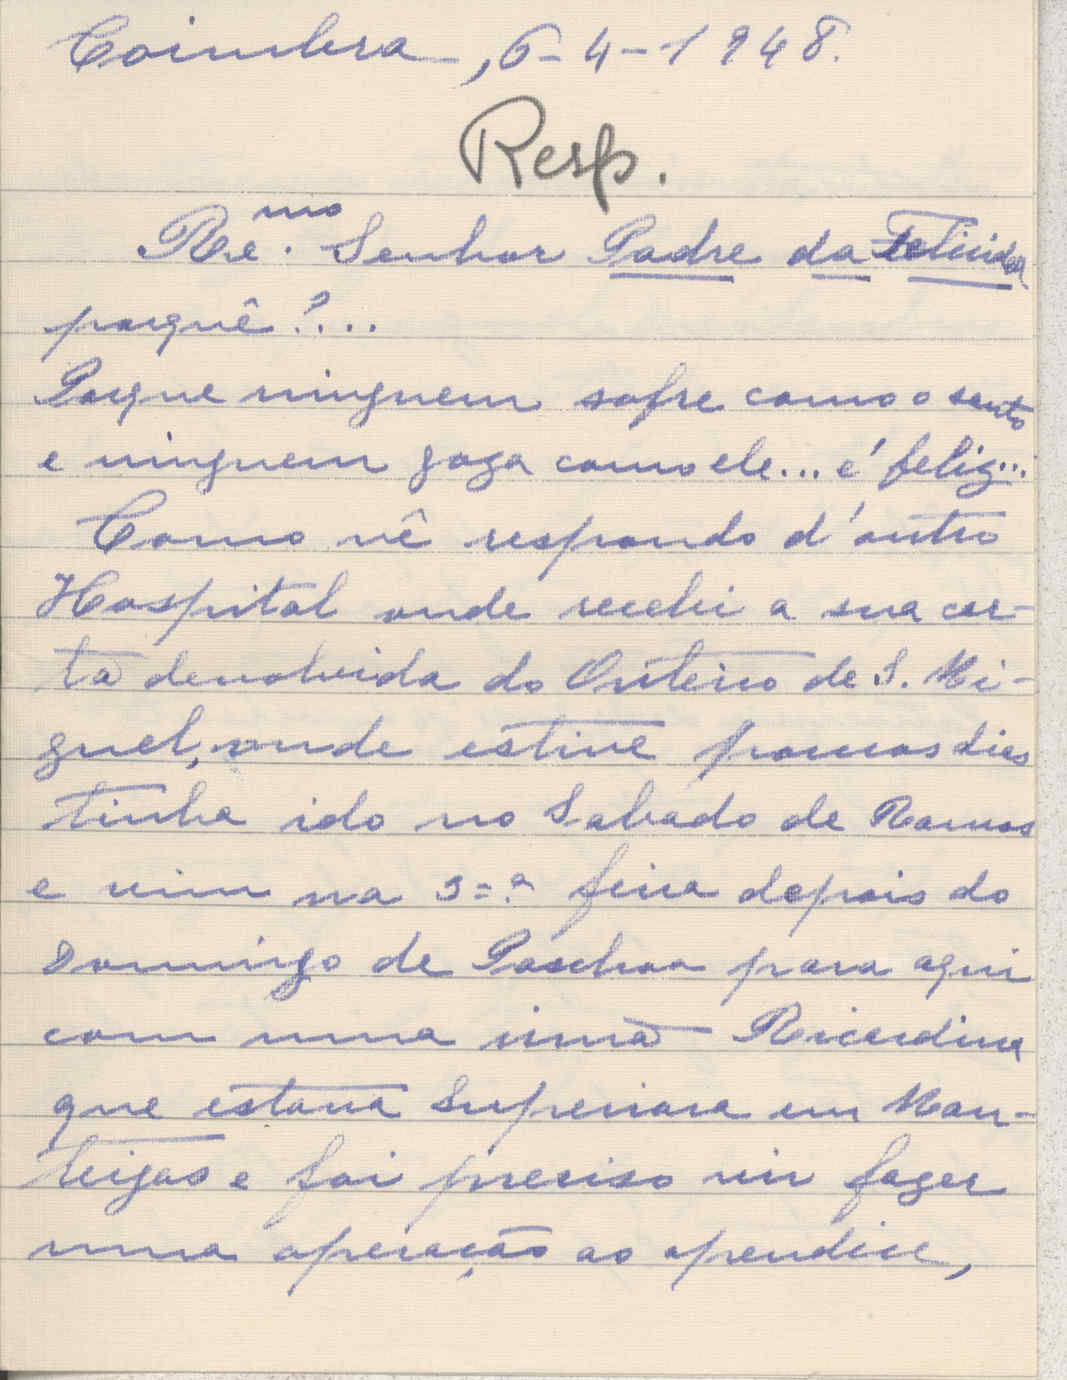 Coimbra, 6-4-1948.
Resp.
Rê.mo Senhor Padre da Felicidade
porquê?...
Porque ninguem sofre como o santo
e ninguem goza como ele... é feliz...
Como vê respondo d'outro
Hospital onde recebi a sua car-
ta devolvida do Outeiro de S. Mi-
guel, onde estive poucos dias
tinha ido no Sabado de Ramos
e vim na 3=ª feira depois do
Domingo de Paschoa para aqui
com uma irmã Ricardina
que estava Superiora em Man-
teigas e foi preciso vir fazer
uma operação ao apendice,